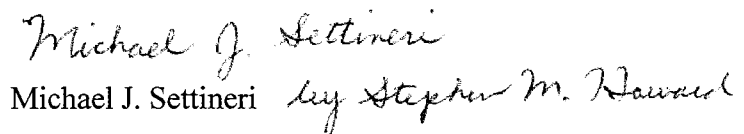 Michael J. Settineri
Michael J. Settineri by Stephen M. Howard